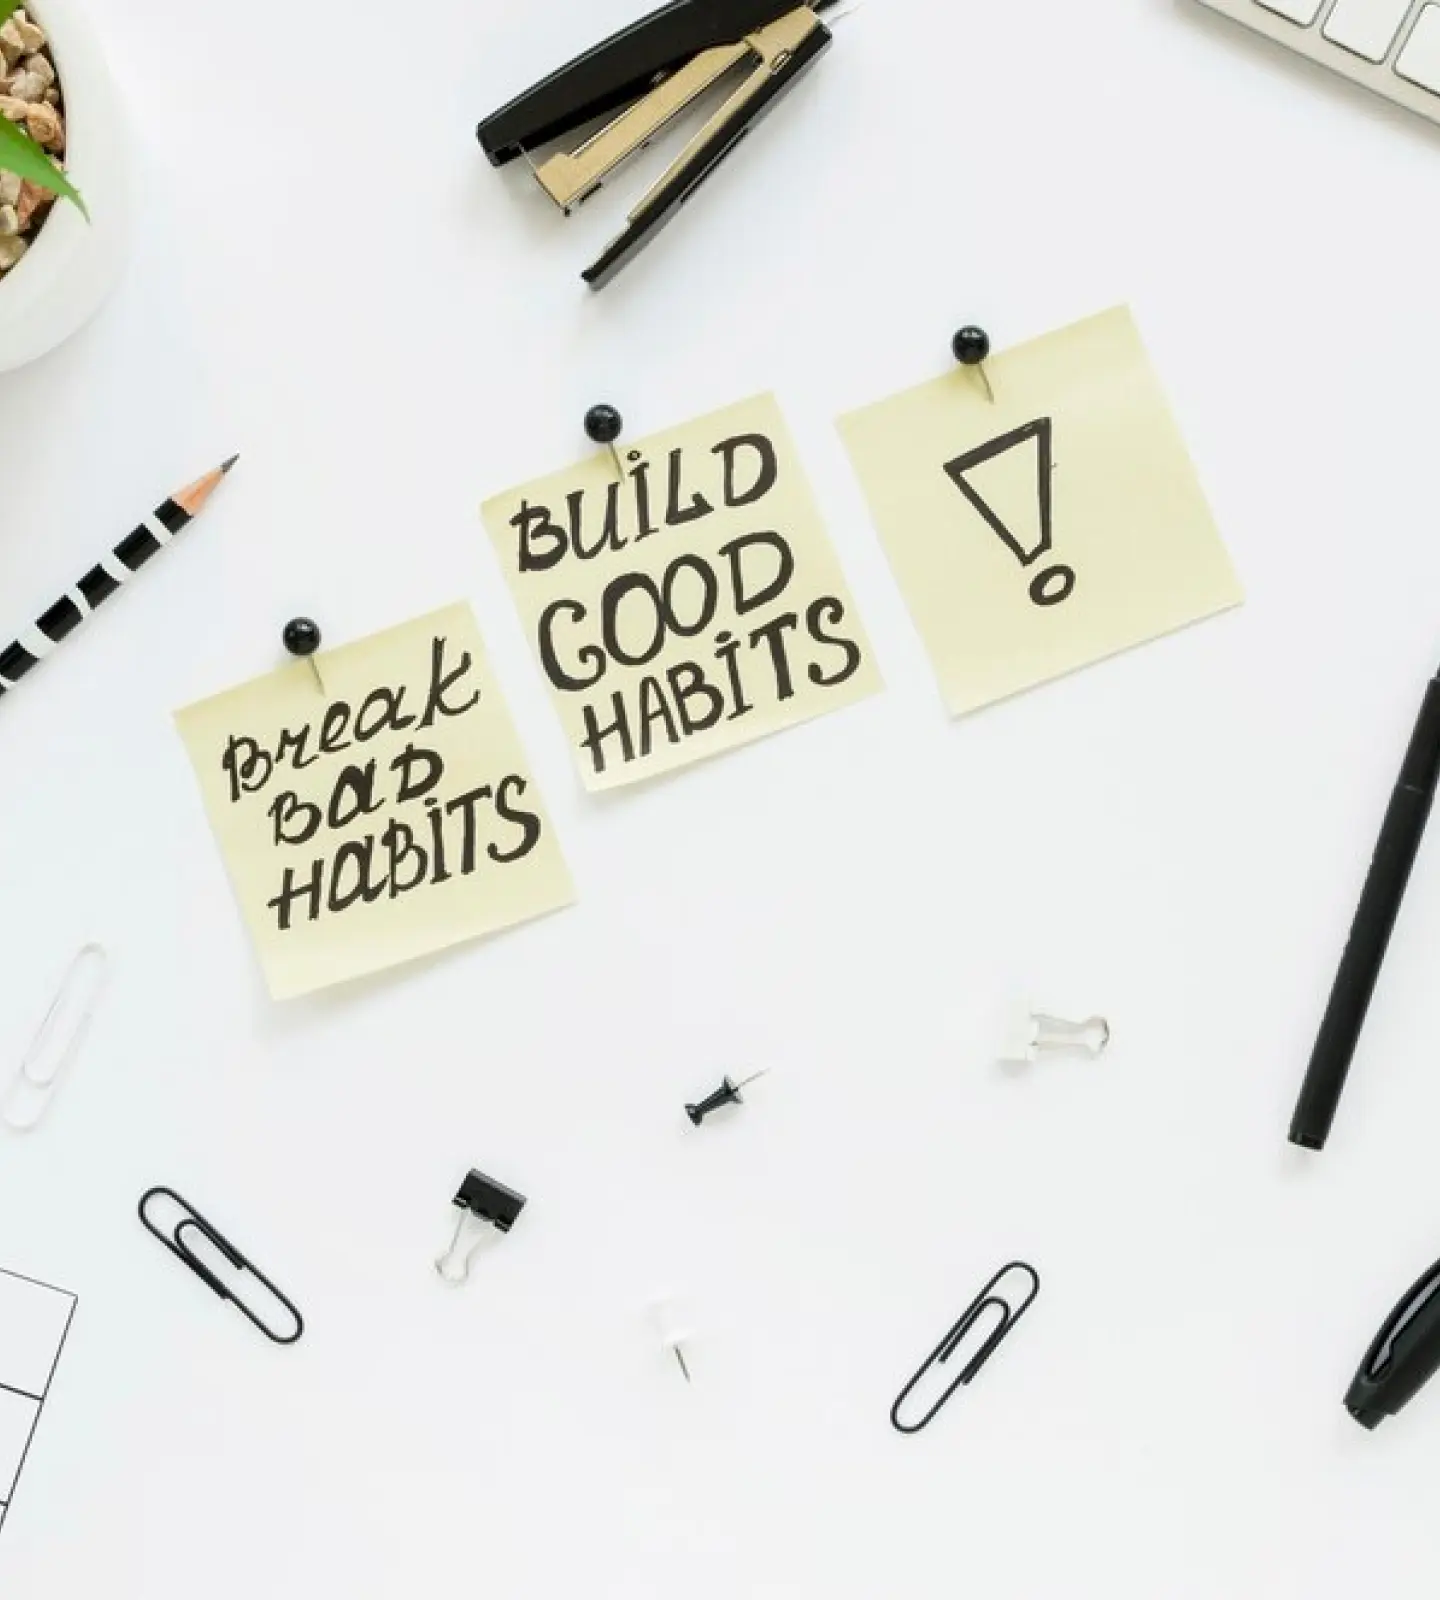 Break
BAD
HABITS
BUILD
GOOD
HABITS
!